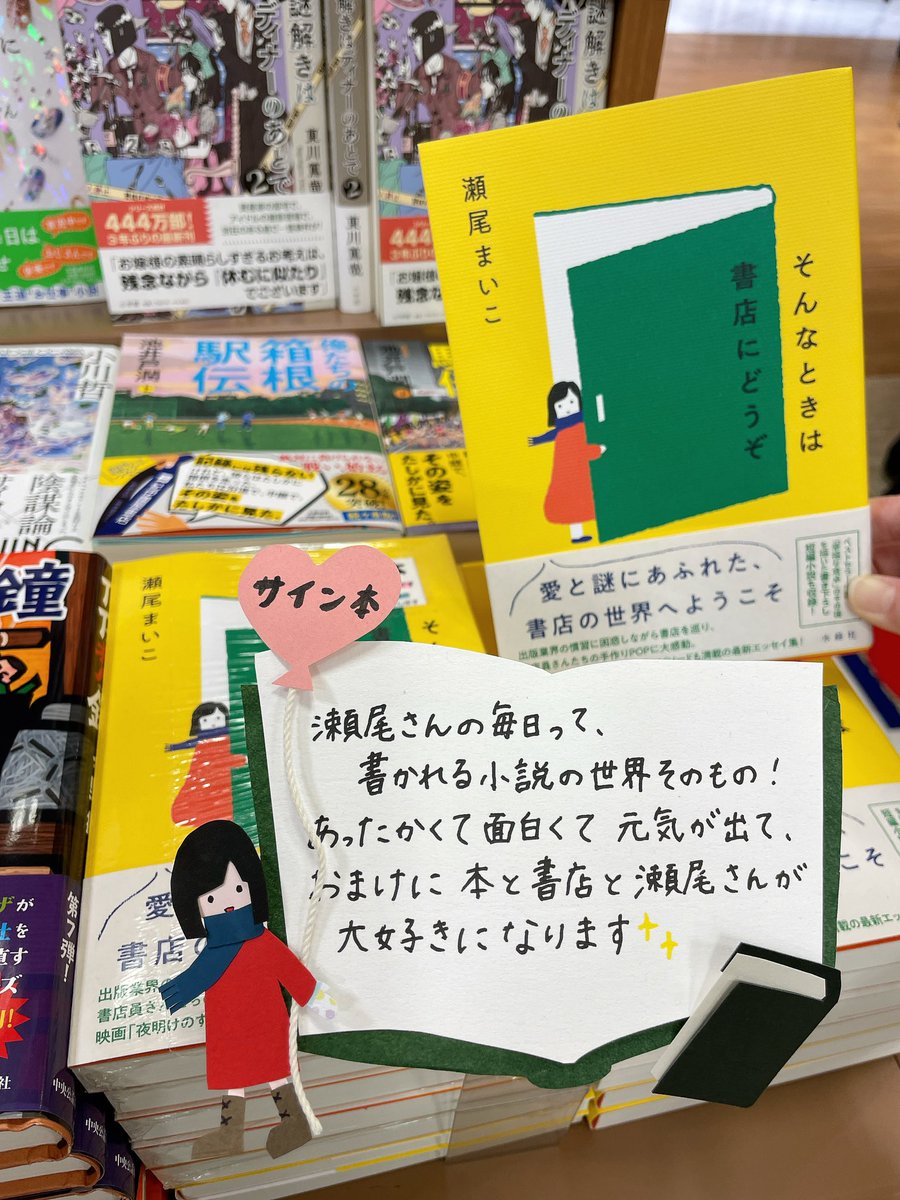 謎解きは
ディナーのあとで
2
444万部!
3年ぶりの最新刊
「お嬢様の素晴らしすぎるお考えは、
残念ながら「休むに似たり」
でございます」
ディナーのあとで
2
東川篤哉
444
残念ながら
小川哲
陰謀論
俺たちの
箱根
駅伝
池井戸潤
上
その姿を
たしかに見た。
池井戸潤
その姿を
たしかに見た。
瀬尾まいこ
そんなときは
書店にどうぞ
愛と謎にあふれた、
書店の世界へようこそ
出版業界の慣習に困惑しながら書店を巡り、
書店員さんたちの手作りPOPに大感動。
短編小説も収録!
水鈴社
サイン本
瀬尾さんの毎日って、
書かれる小説の世界そのもの!
あったかくて面白くて 元気が出て、
おまけに 本と書店と瀬尾さんが
大好きになります
瀬尾まいこ
そ
書店の
出版業界の
書店員さん
映画「夜明けのす
こそ
載の最新エッセイ
鐘
第7弾!